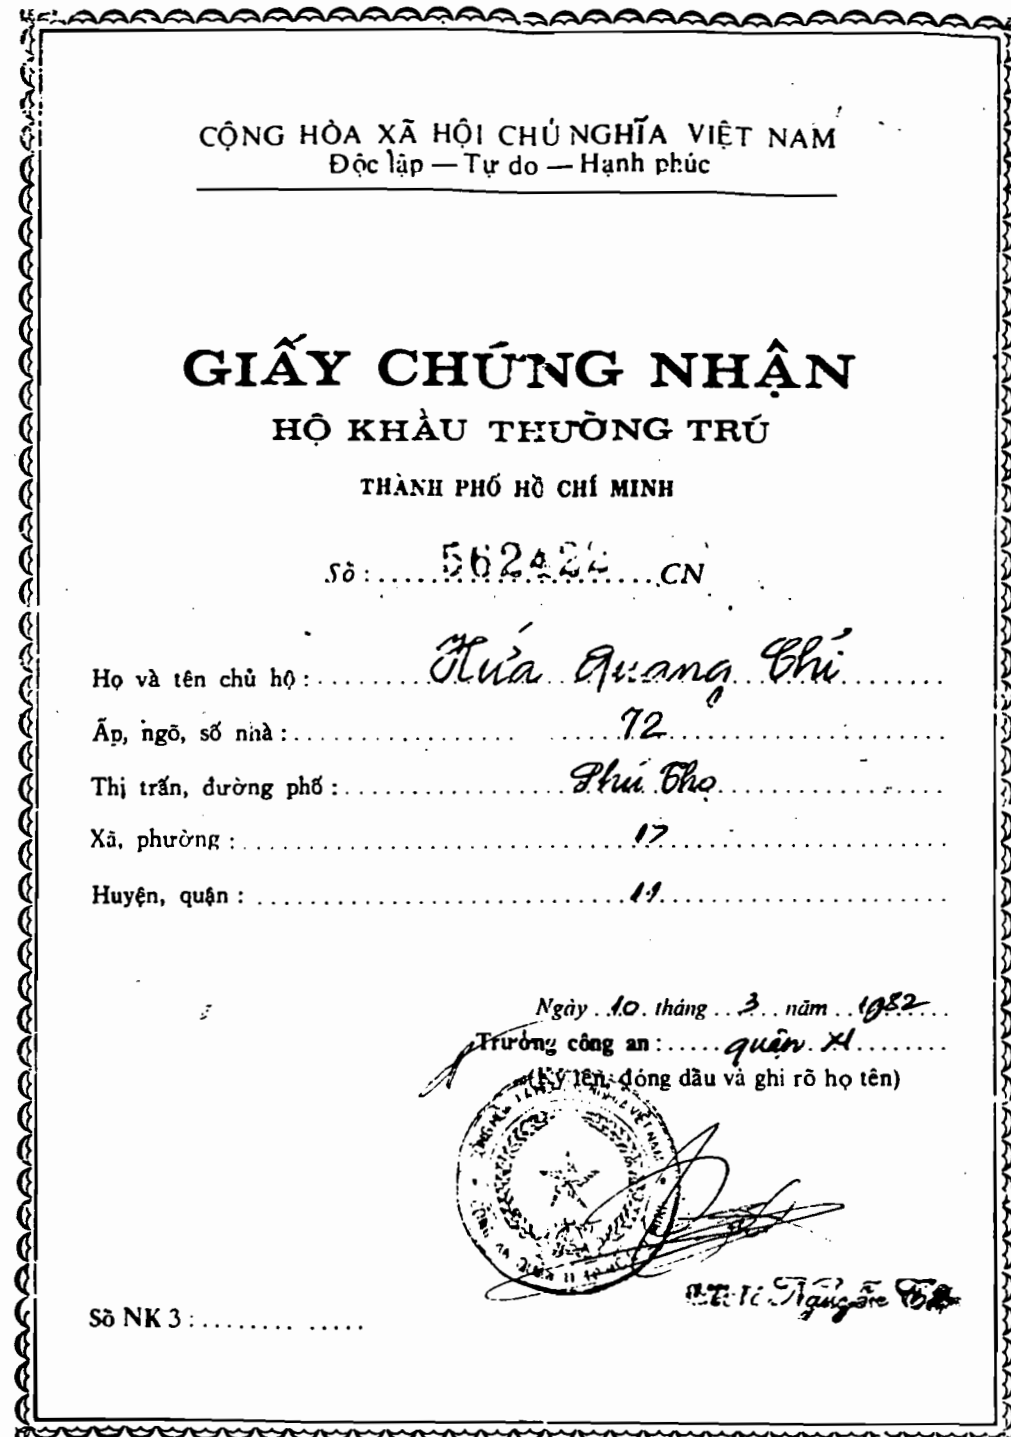 CỘNG HÒA XÃ HỘI CHỦ NGHĨA VIỆT NAM
Độc lập — Tự do — Hạnh phúc
GIẤY CHỨNG NHẬN
HỘ KHẨU THƯỜNG TRÚ
THÀNH PHỐ HỒ CHÍ MINH
Số: 56242 CN
Họ và tên chủ hộ: Hứa Quang Chí
Ấp, ngõ, số nhà: 72
Thị trấn, đường phố: Phú Thọ
Xã, phường: 17
Huyện, quận: 11
Ngày 10 tháng 3 năm 1982
Trưởng công an: quận XI
(Ký tên, đóng dấu và ghi rõ họ tên)
VIỆT NAM
Số NK 3: